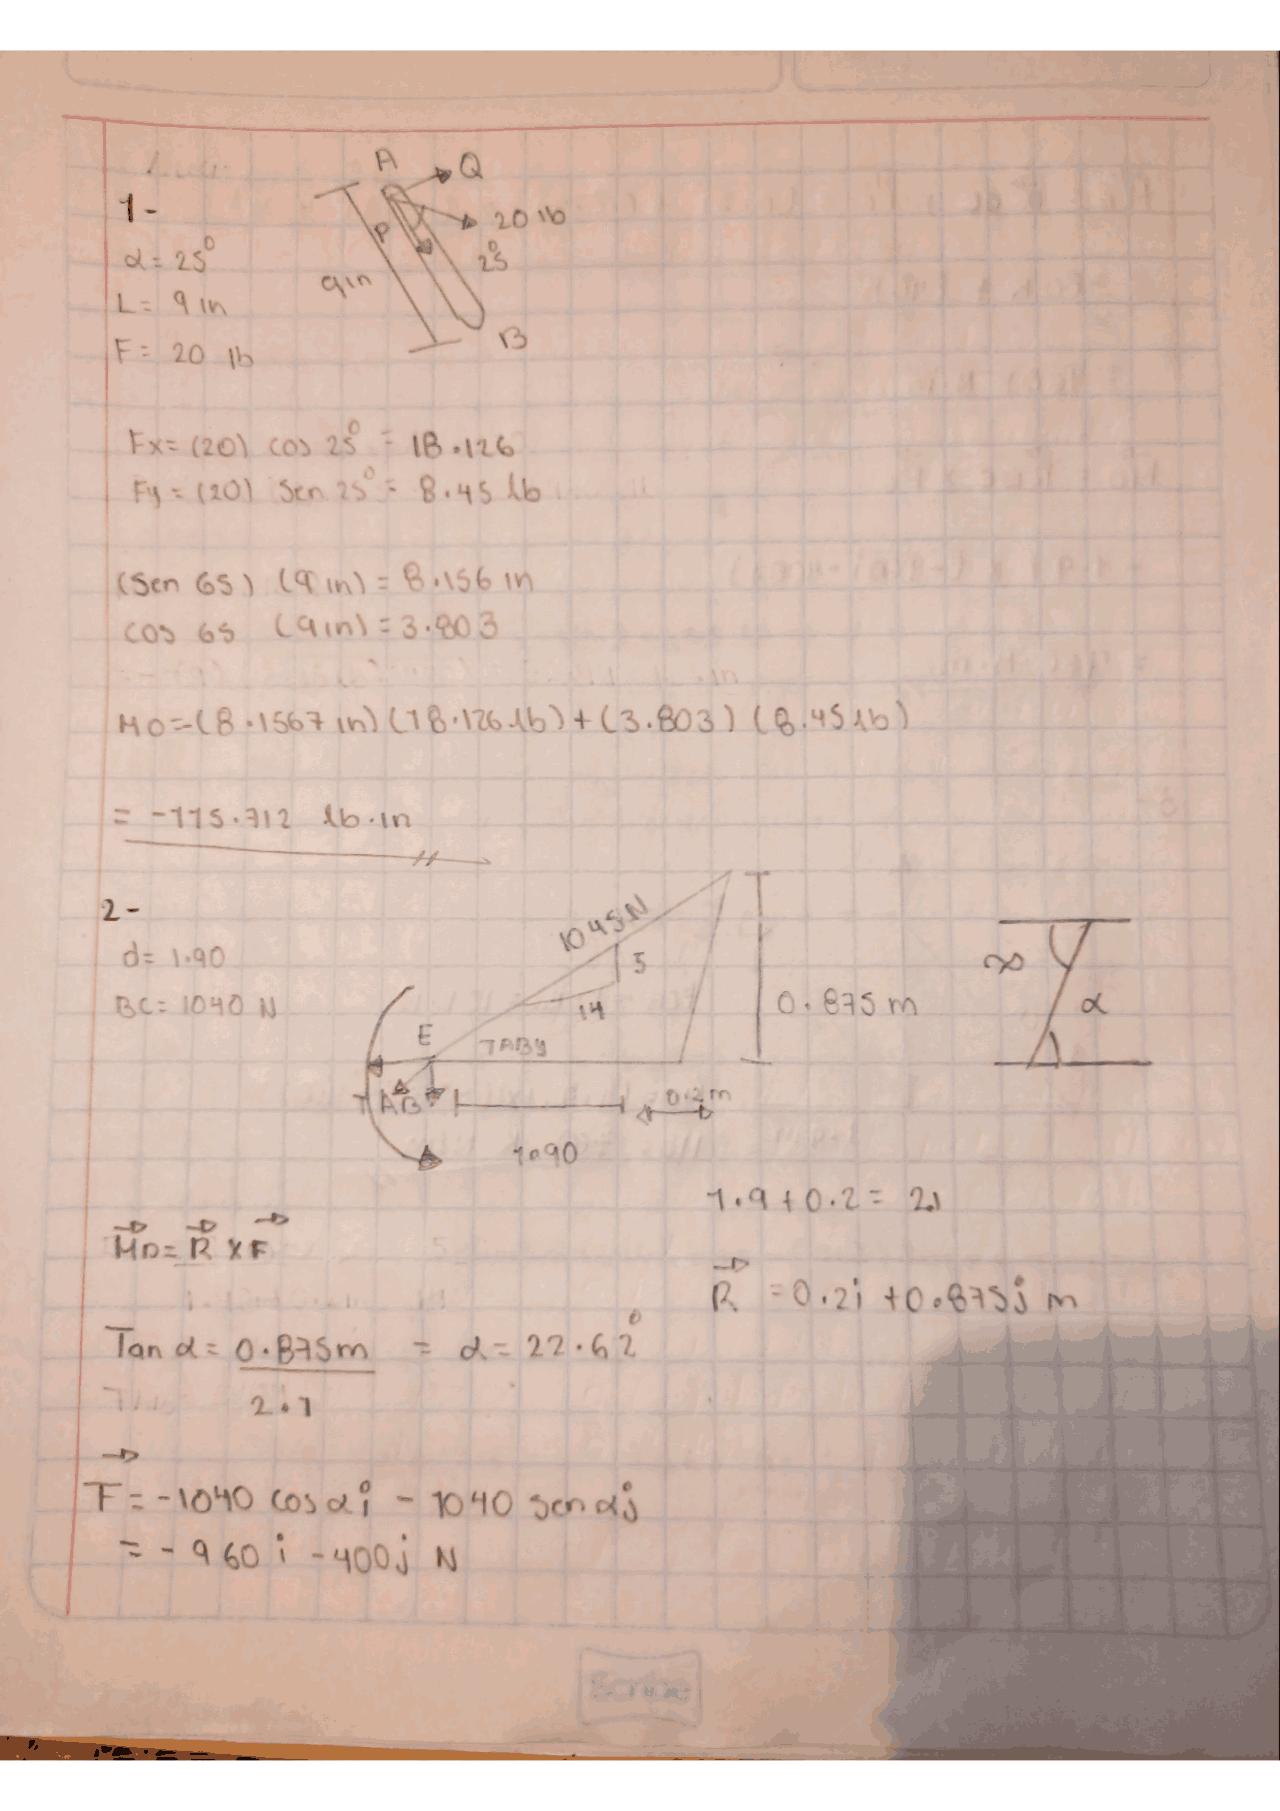 1-
α= 25°
L= 9 in
F= 20 lb
A
Q
20 lb
P
25°
9in
B
Fx= (20) cos 25° = 18.126
Fy = (20) Sen 25° = 8.45 lb
(Sen 65) (9 in) = 8.156 in
cos 65 (9in) = 3.803
MO=-(8.1567 in)(18.126 lb)+(3.803)(8.45 lb)
= -115.712 lb.in
2-
d= 1.90
BC= 1040 N
1045N
5
14
E
TABy
TAB
0.875 m
0.2m
1.90
∝
α
1.9+0.2= 2.1
MD= R x F
R = 0.2i +0.875j m
Tan α= 0.875m = α= 22.62°
2.1
F= -1040 cos αi - 1040 sen αj
= -960 i -400j N
Scribe